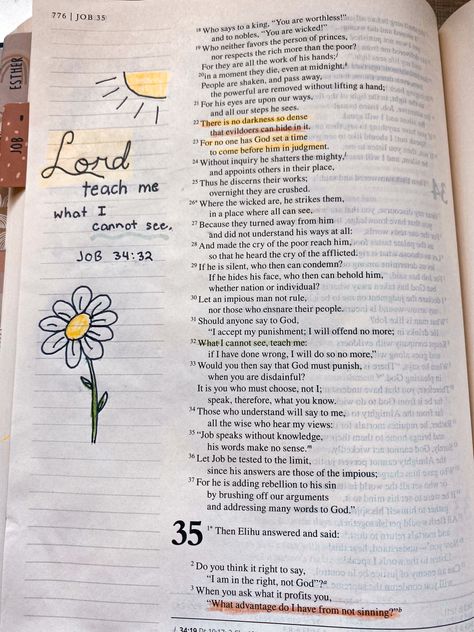 776 | JOB 35
ESTHER
JOB
Lord
teach me
what I
cannot see.
JOB 34:32
18 Who says to a king, "You are worthless!"
and to nobles, "You are wicked!"
19 Who neither favors the person of princes,
nor respects the rich more than the poor?
For they are all the work of his hands;
20 in a moment they die, even at midnight.
People are shaken, and pass away,
the powerful are removed without lifting a hand;
21 For his eyes are upon our ways,
and all our steps he sees.
22 There is no darkness so dense
that evildoers can hide in it.
23 For no one has God set a time
to come before him in judgment.
24 Without inquiry he shatters the mighty,
and appoints others in their place,
25 Thus he discerns their works;
overnight they are crushed.
26* Where the wicked are, he strikes them,
in a place where all can see,
27 Because they turned away from him
and did not understand his ways at all:
28 And made the cry of the poor reach him,
so that he heard the cry of the afflicted.
29 If he is silent, who then can condemn?
If he hides his face, who then can behold him,
whether nation or individual?
30 Let an impious man not rule,
nor those who ensnare their people.
31 Should anyone say to God,
"I accept my punishment; I will offend no more;
32 What I cannot see, teach me:
if I have done wrong, I will do so no more,"
33 Would you then say that God must punish,
when you are disdainful?
It is you who must choose, not I;
speak, therefore, what you know.
34 Those who understand will say to me,
all the wise who hear my views:
35 "Job speaks without knowledge,
his words make no sense.m
36 Let Job be tested to the limit,
since his answers are those of the impious;
37 For he is adding rebellion to his sin
by brushing off our arguments
and addressing many words to God."
35 1* Then Elihu answered and said:
2 Do you think it right to say,
"I am in the right, not God"?a
3 When you ask what it profits you,
"What advantage do I have from not sinning?"b